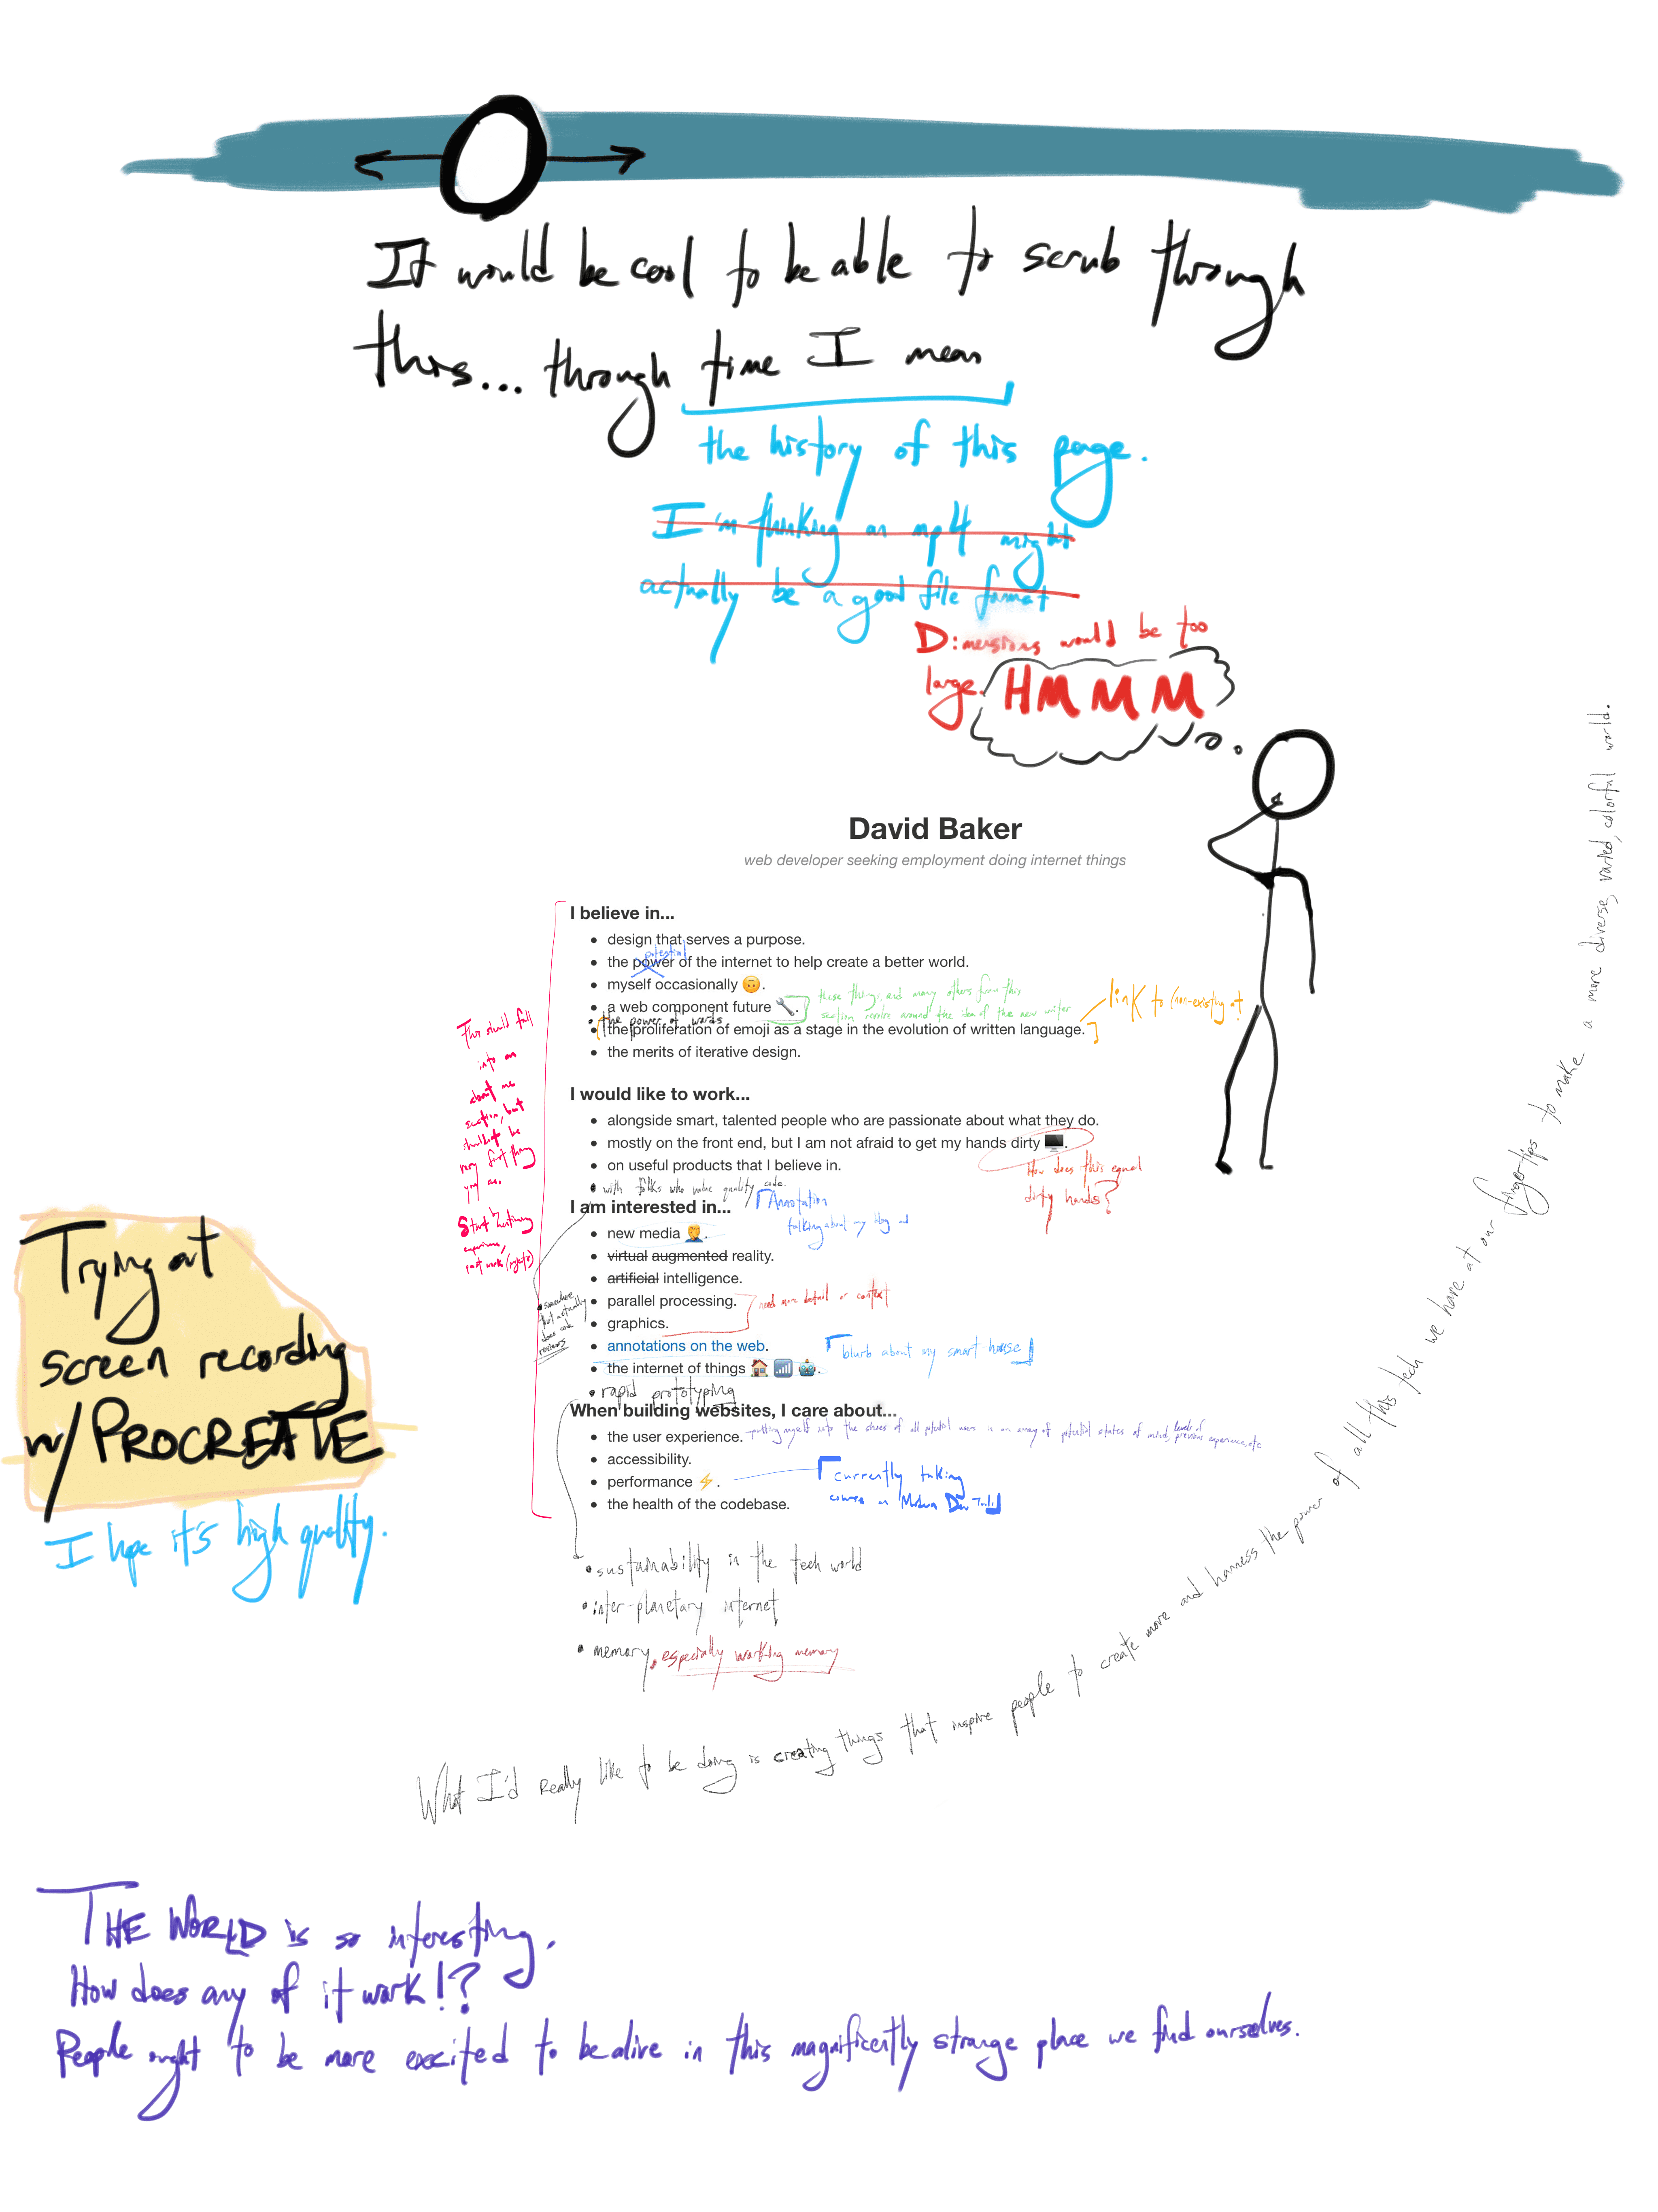 It would be cool to be able to scrub through
this... through time I mean
the history of this page.
I'm thinking an mp4 might
actually be a good file format
Dimensions would be too
large.
HMMM
David Baker
web developer seeking employment doing internet things
I believe in...
• design that serves a purpose.
potential
• the power of the internet to help create a better world.
• myself occasionally 🙃.
• a web component future 🔧.
these things and many others from this
section revolve around the idea of the new writer
• the power of words
• the proliferation of emoji as a stage in the evolution of written language.
link to (non-existing at
• the merits of iterative design.
This should fall
into an
about me
section, but
shouldn't be
very first thing
you see.
Start
experience,
past work (right?)
I would like to work...
• alongside smart, talented people who are passionate about what they do.
• mostly on the front end, but I am not afraid to get my hands dirty 🖥️.
How does this equal
dirty hands?
• on useful products that I believe in.
• with folks who value quality code.
• somewhere
that actually
does code
reviews
I am interested in...
Annotation
talking about → blog
• new media 🤦‍♂️.
• virtual augmented reality.
• artificial intelligence.
• parallel processing.
• graphics.
need more detail or context
• annotations on the web.
• the internet of things 🏠 📶 🤖.
blurb about my smart house
• rapid prototyping
When building websites, I care about...
• the user experience.
putting myself into the shoes of all potential users in an array of potential states of mind, levels of previous experience, etc
• accessibility.
• performance ⚡.
currently taking
course on Modern Dev Tools
• the health of the codebase.
• sustainability in the tech world
• inter-planetary internet
• memory, especially working memory
Trying out
screen recording
w/ PROCREATE
I hope it's high quality.
What I'd really like to be doing is creating things that inspire people to create more and harness the power of all this tech we have at our finger-tips to make a more diverse, varied, colorful world.
THE WORLD is so interesting.
How does any of it work!?
People ought to be more excited to be alive in this magnificently strange place we find ourselves.